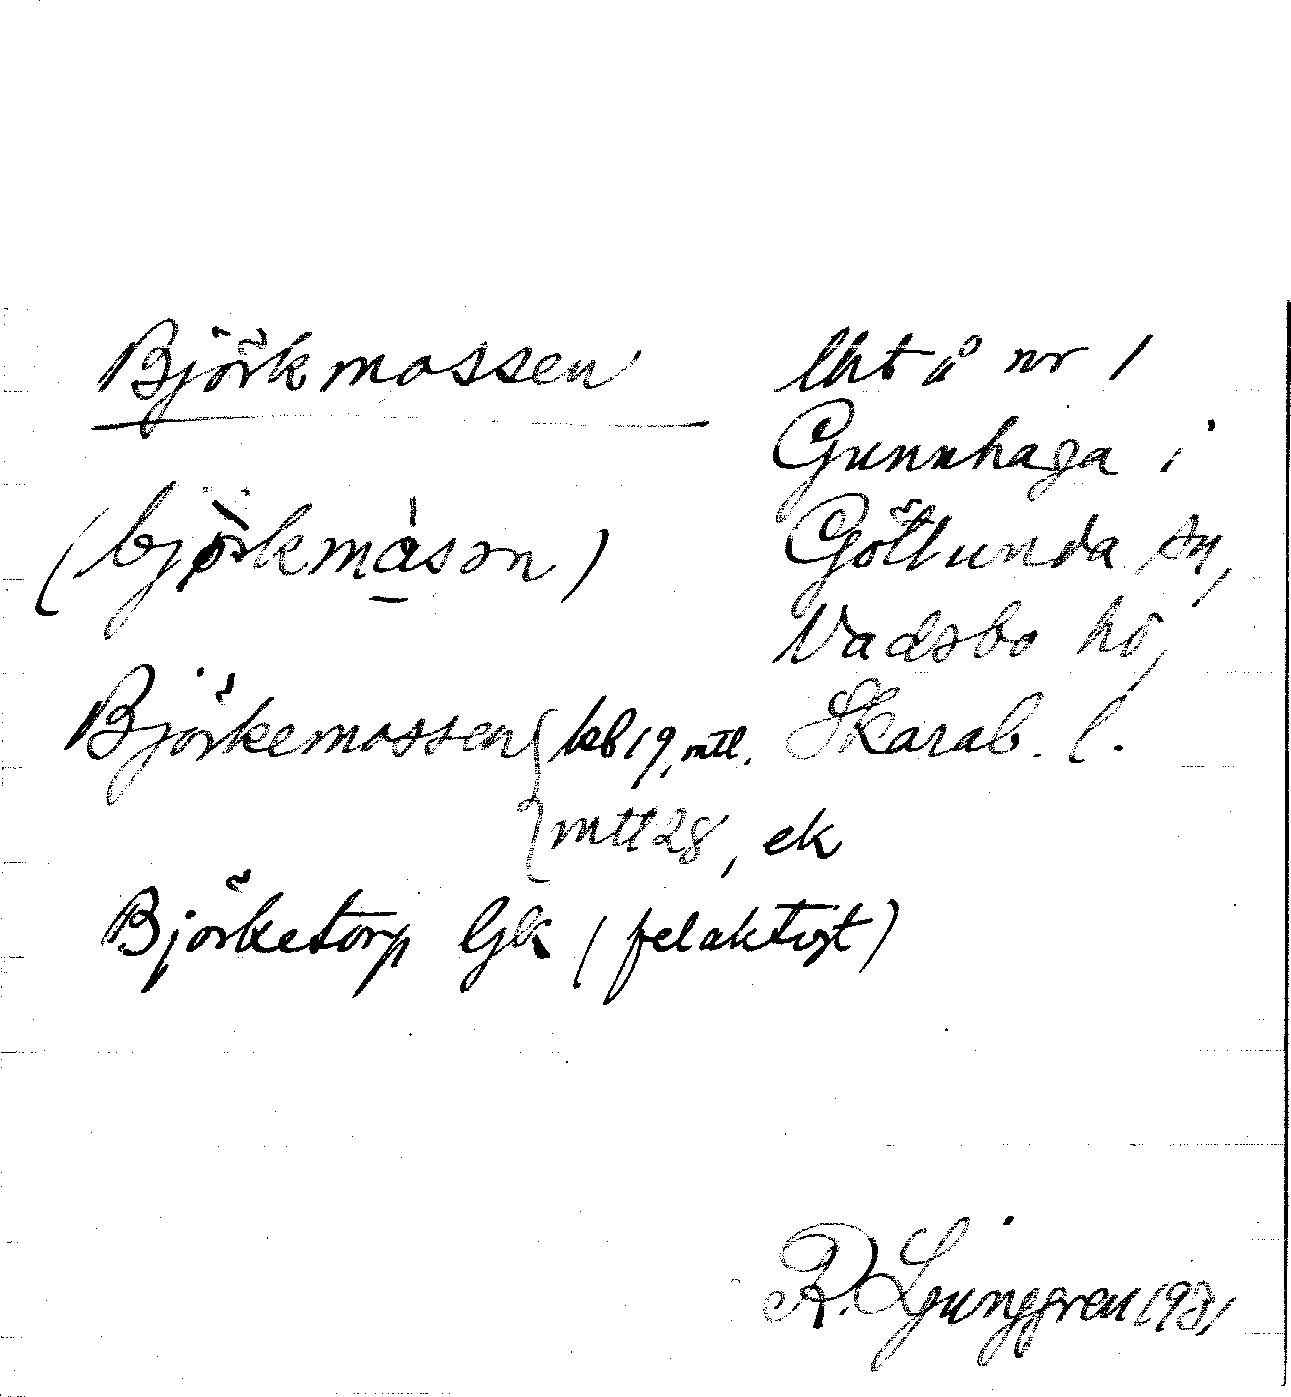 Björkmossen
lht å nr 1
Gunnhaga i
Götlunda sn,
Vadsbo hd,
Skarab. l.
(bjørkmåsən)
Björkemossen { kb 19, mtl.
mtt 28, ek
Björketorp Gk (felaktigt)
R. Ljunggren 1931